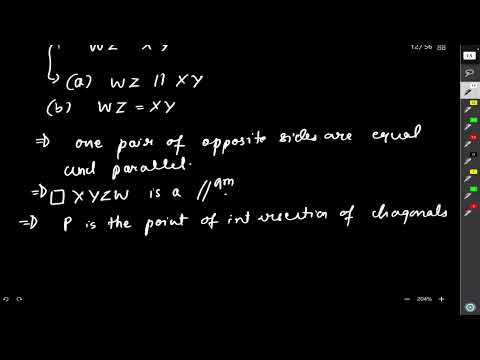 WZ XY
12/56
(a) WZ || XY
(b) WZ = XY
⇒ one pair of opposite sides are equal
and parallel.
⇒ □ XYZW is a ||gm.
⇒ P is the point of intersection of diagonals
204%